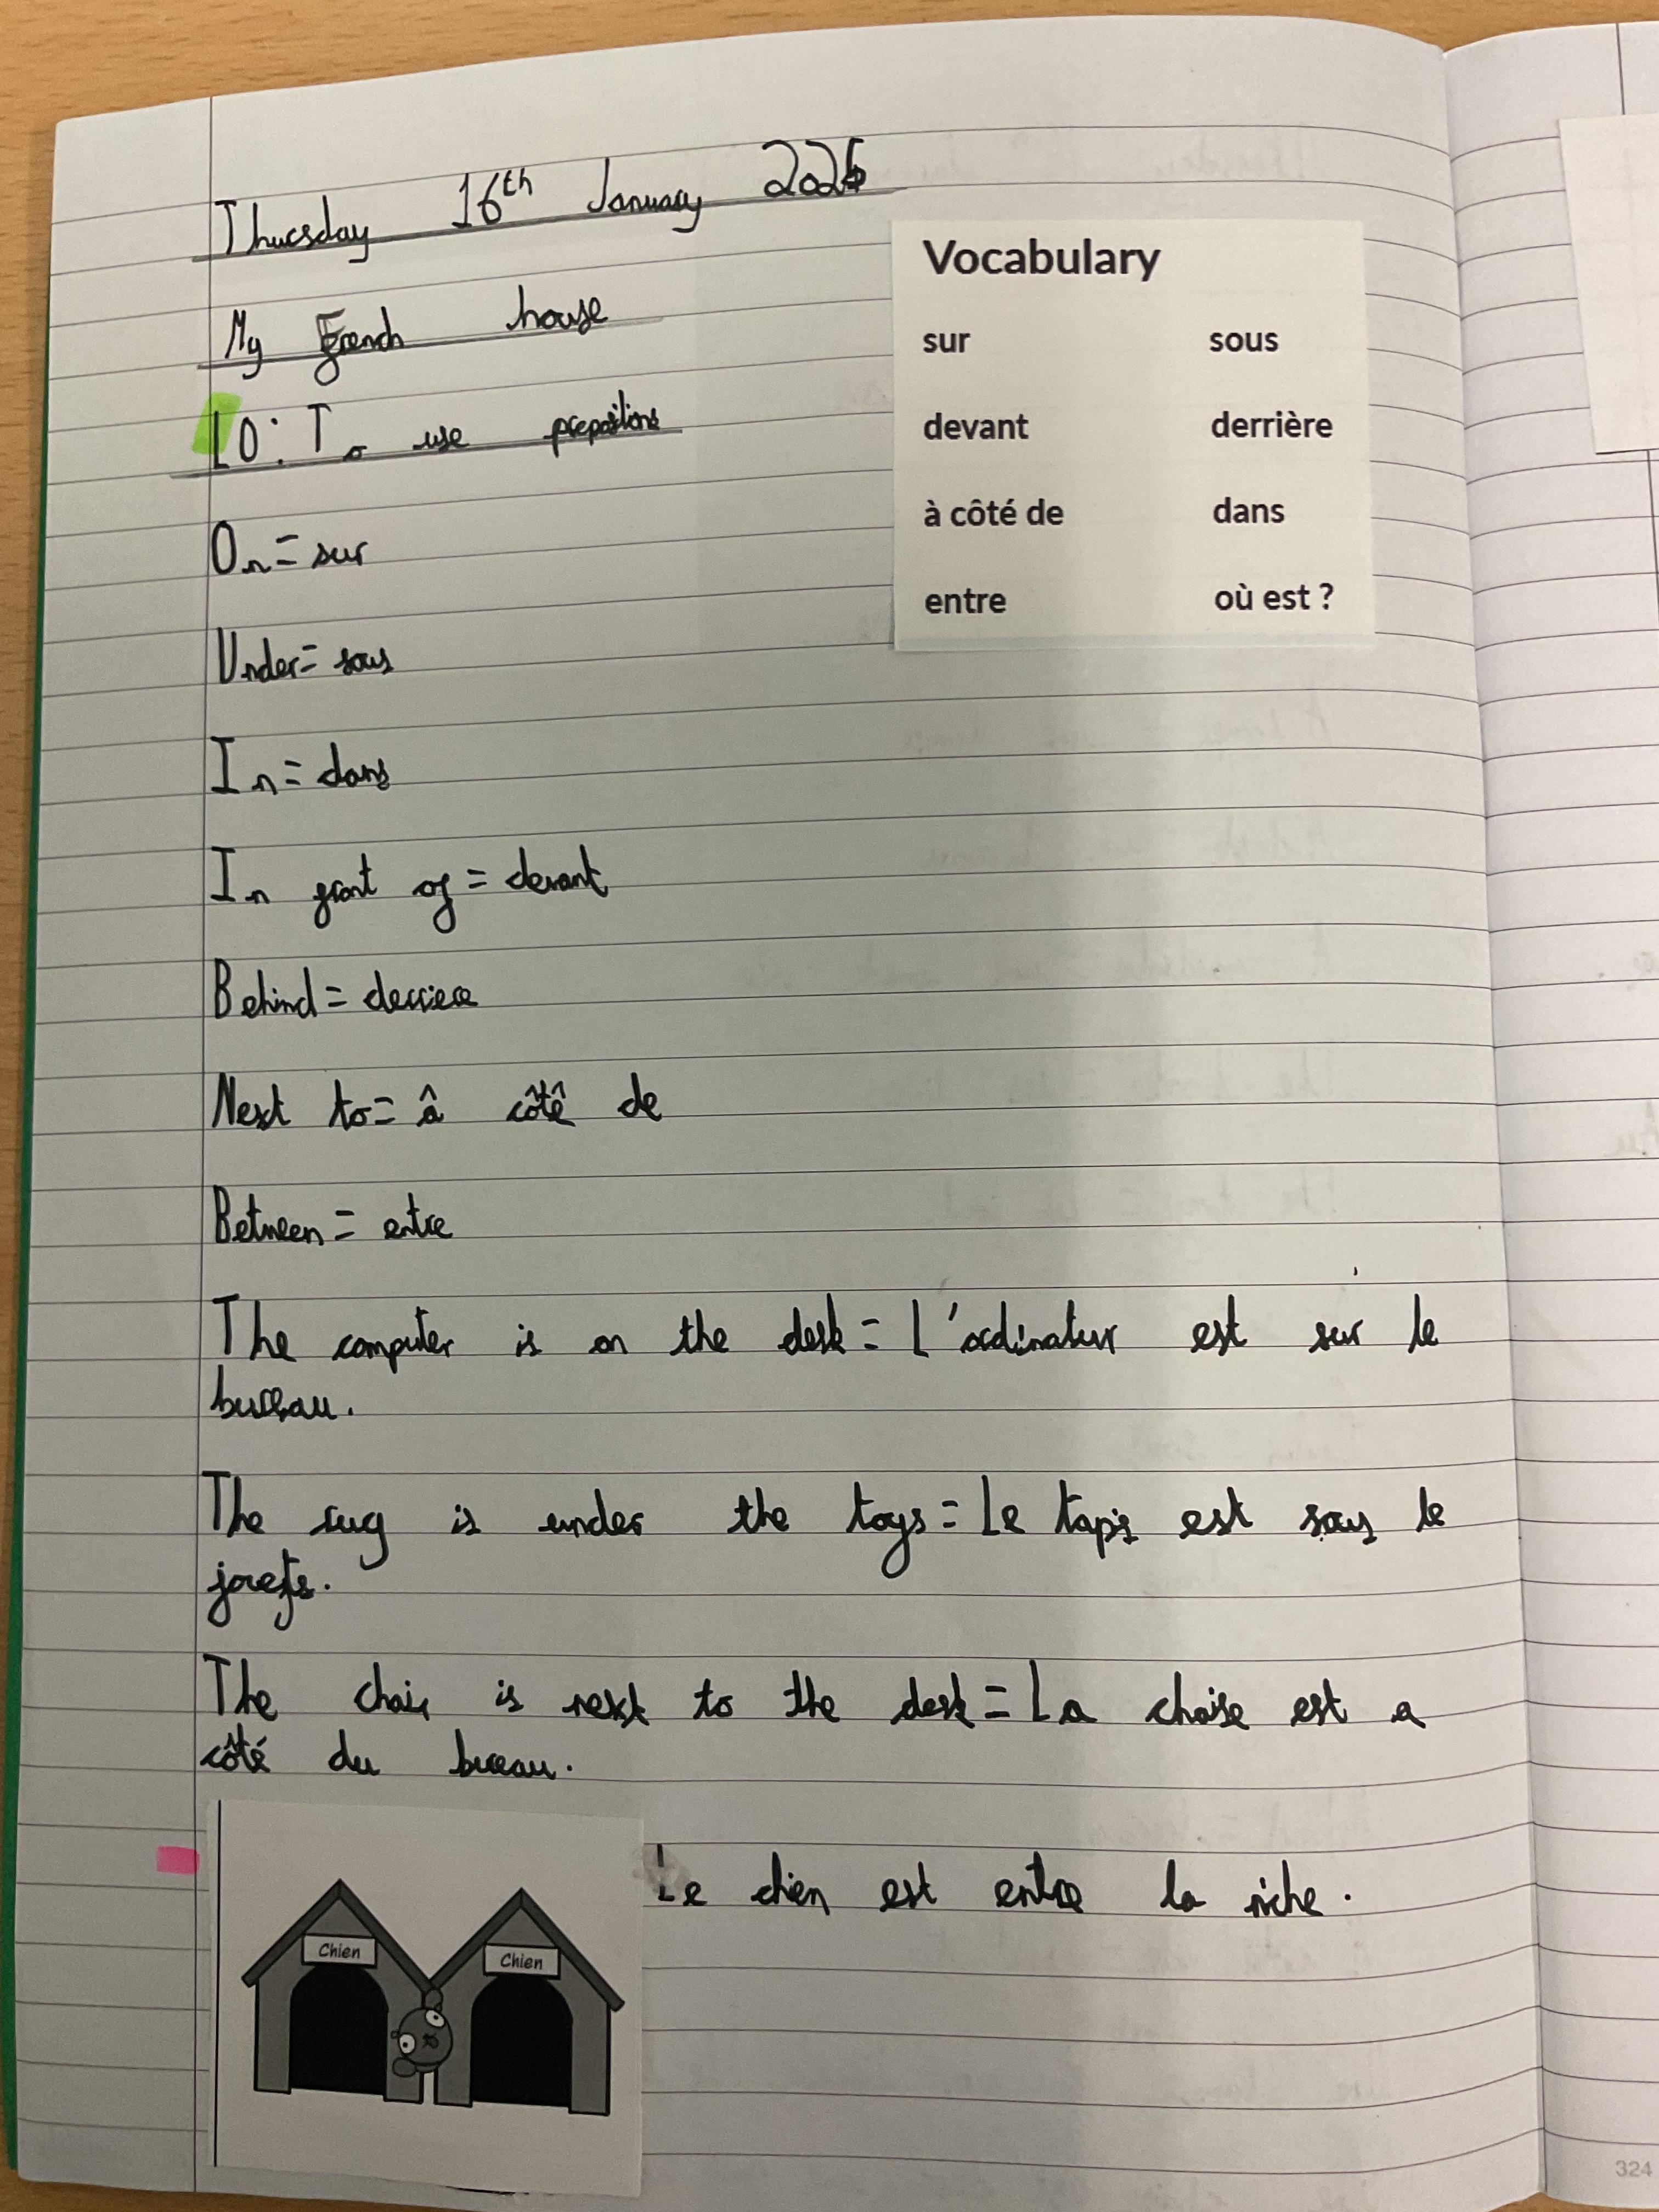 Thursday 16th January 2026
My French house
LO: To use prepositions
Vocabulary
sur sous
devant derrière
à côté de dans
entre où est ?
On = sur
Under = sous
In = dans
In front of = devant
Behind = derriere
Next to = â côtê de
Between = entre
The computer is on the desk = L'ordinatur est sur le
bureau.
The rug is under the toys = Le tapis est sous le
The chair is next to the desk = La chaise est a
côté du bureau.
Chien
Chien
Le chien est entre la niche.
324